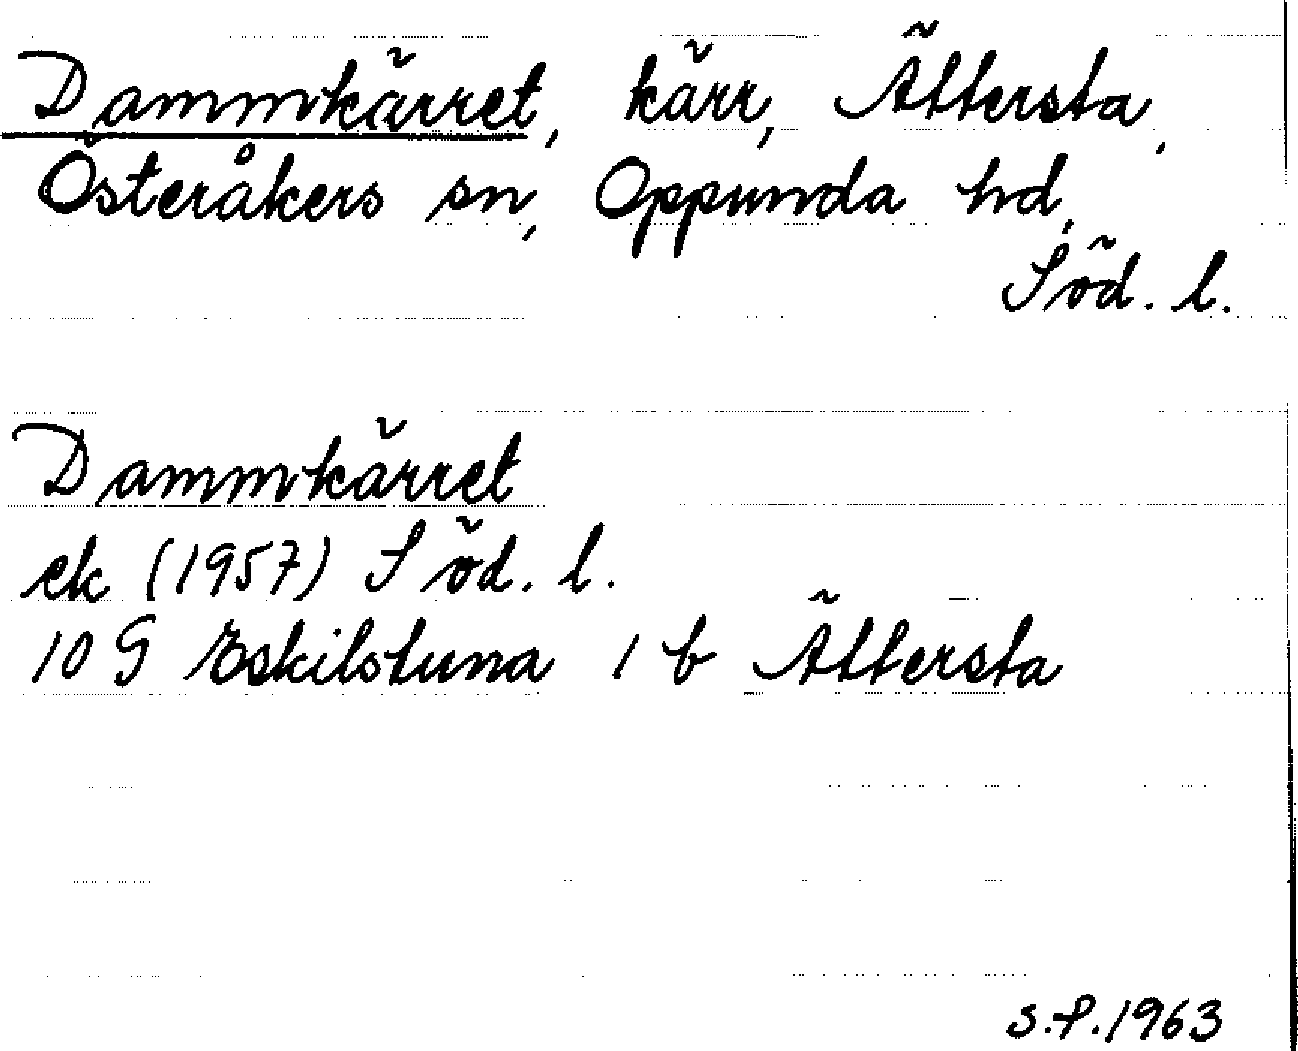 Dammkärret, kärr, Ättersta,
Österåkers sn, Oppunda hd,
Söd. l.
Dammkärret
ek (1957) Söd. l.
10 G Eskilstuna 1 b Ättersta
S.P. 1963